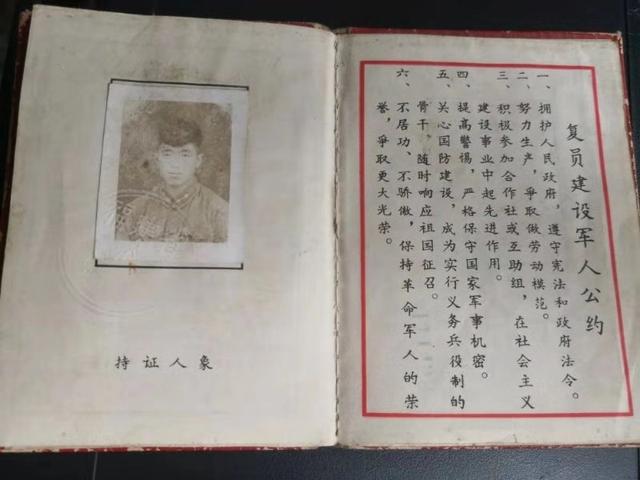 持证人象
复员建设军人公约
一、拥护人民政府，遵守宪法和政府法令。
二、努力生产，爭取做劳动模范。
三、积极参加合作社或互助组，在社会主义
建设事业中起先进作用。
四、提高警惕，严格保守国家军事机密。
五、关心国防建设，成为实行义务兵役制的
骨干。随时响应祖国征召。
六、不居功、不骄傲，保持革命军人的荣
誉，爭取更大光荣。